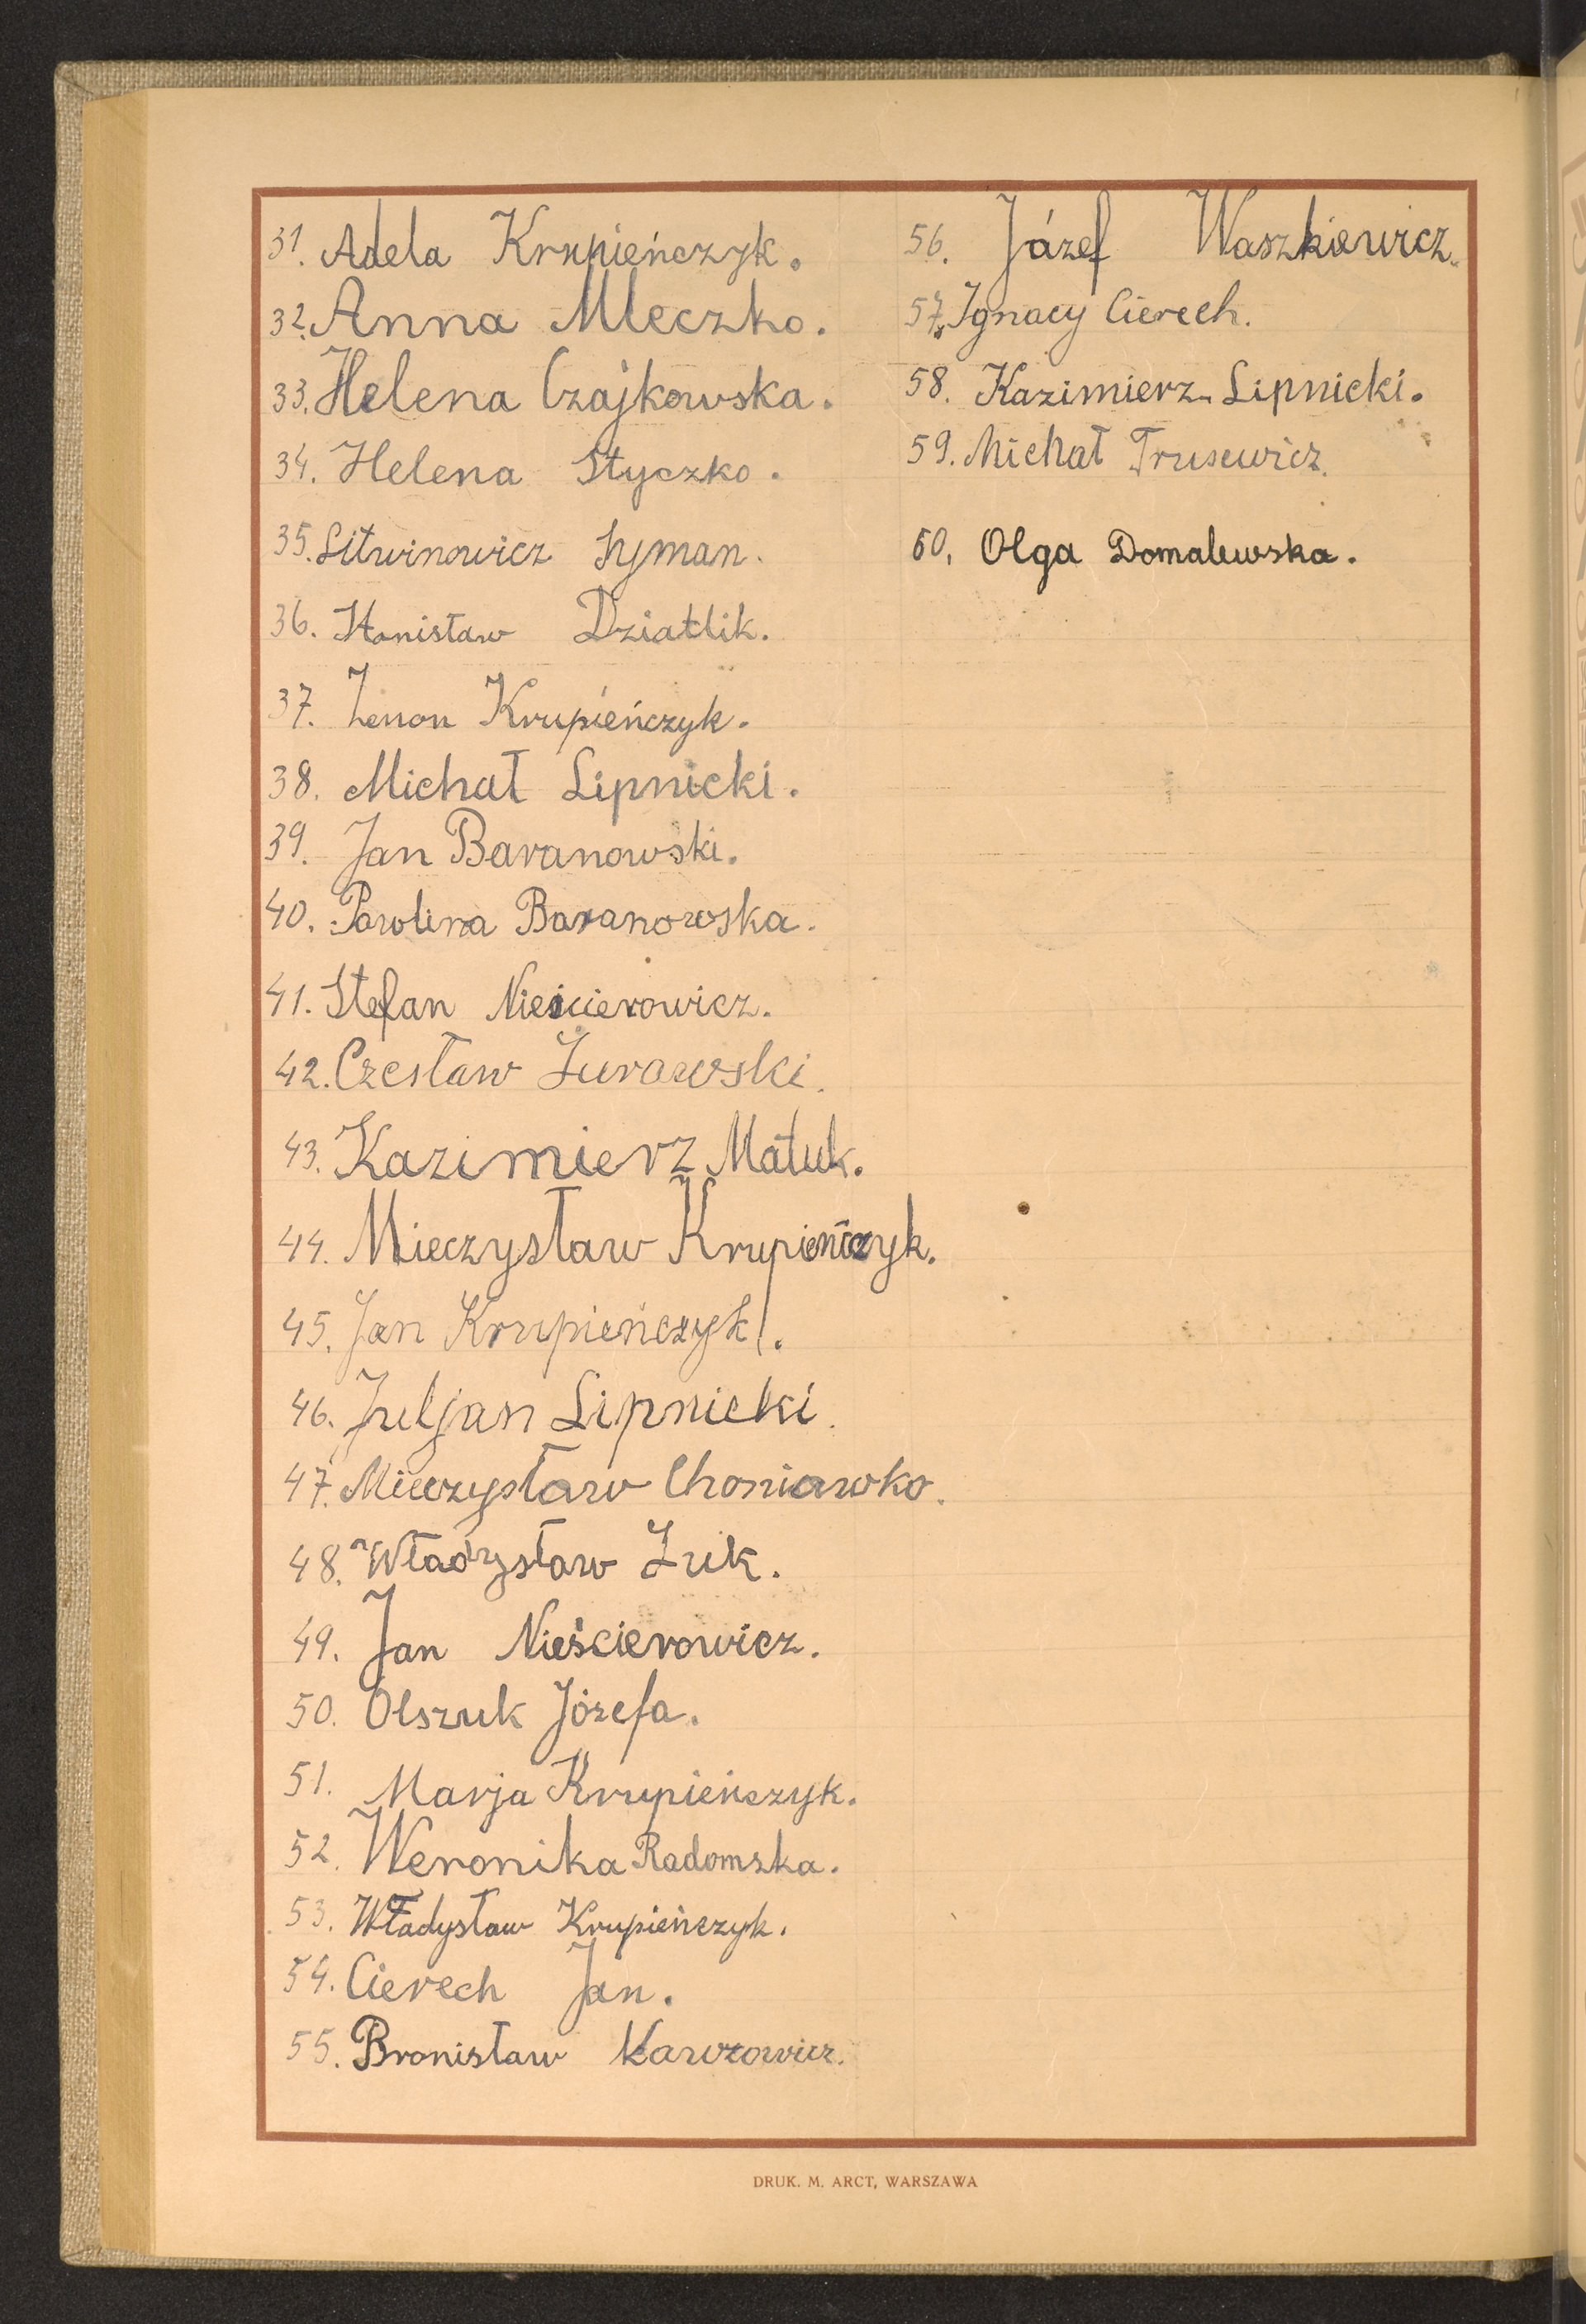 31. Adela Krupieńczyk.
32. Anna Mleczko.
33. Helena Czajkowska.
34. Helena Styczko.
35. Litwinowicz Szyman.
36. Stanisław Dziatlik.
37. Zenon Krupieńczyk.
38. Michał Lipnicki.
39. Jan Baranowski.
40. Parolina Baranowska.
41. Stefan Nieścierowicz.
42. Czesław Żurawski.
43. Kazimierz Matuk.
44. Mieczysław Krupieńczyk.
45. Jan Krupieńczyk.
46. Juljan Lipnicki.
47. Mieczysław Choniawko.
48. Władysław Żuk.
49. Jan Nieścierowicz.
50. Olszuk Józefa.
51. Marja Krupieńczyk.
52. Weronika Radomska.
53. Władysław Krupieńczyk.
54. Cierech Jan.
55. Bronisław
56. Józef Waszkiewicz.
57. Ignacy Cierech.
58. Kazimierz Lipnicki.
59. Michał Trusewicz.
60. Olga Domalewska.
DRUK. M. ARCT, WARSZAWA